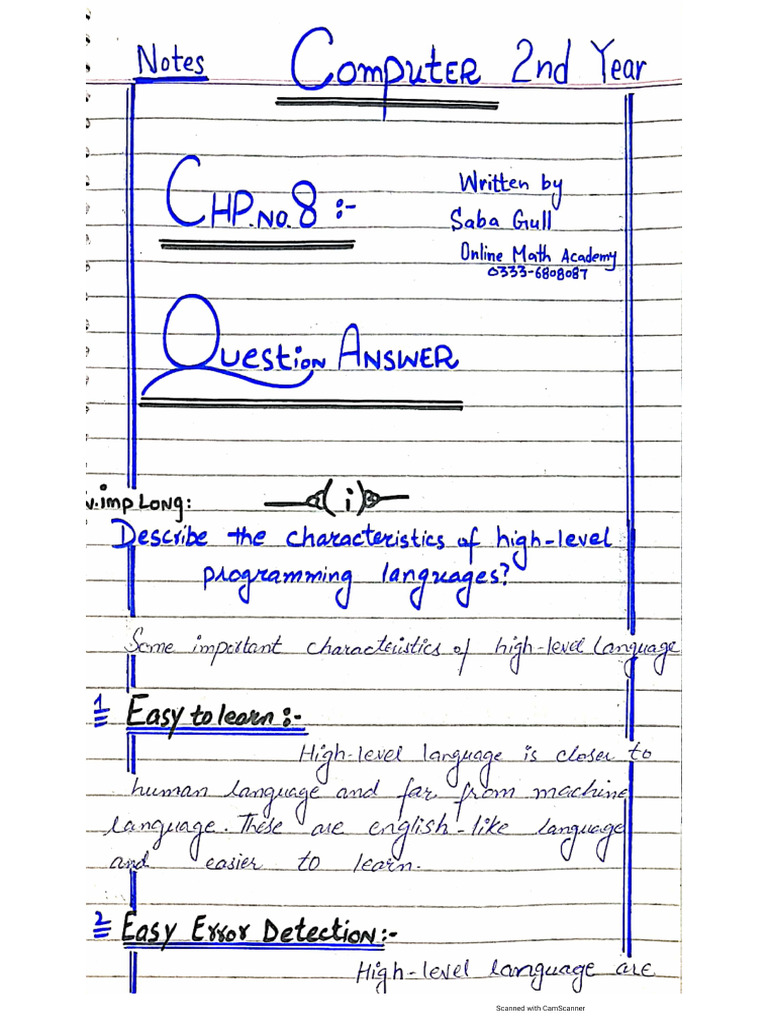 Notes Computer 2nd Year
CHP.NO.8 :-
Written by
Saba Gull
Online Math Academy
0333-6808087
Question Answer
v.imp Long:
(i)
Describe the characteristics of high-level
programming languages?
Some important characteristics of high-level language
1 Easy to learn :-
High-level language is closer to
human language and far from machine
language. These are english-like language
and easier to learn.
2 Easy Error Detection:-
High-level language are
Scanned with CamScanner